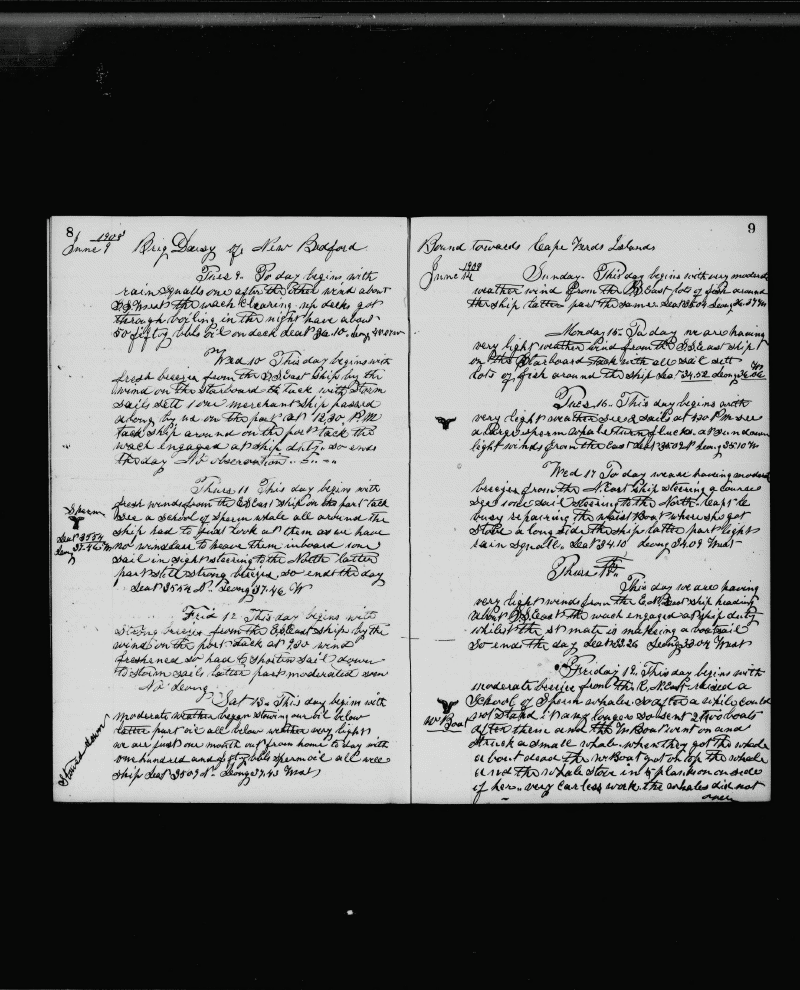 8
1908
June 9
Brig Daisy of New Bedford
Tues 9. To day begins with
rain squalls one after the other wind about
the wach clearing up decks got
through boiling in the night have about
50 fifty bbls oil on deck Leat 36.10. Leong
Wed 10 This day begins with
fresh breeze from the East Ship by the
wind on the Starboard tack with Storm
sails sett 1 one merchant ship passed
along by us on the port at 12,30 P.M
tack ship around on the port tack the
wach engaged at ship duty. so ends
the day No observation
Thurs 11 This day begins with
fresh winds from the East ship on the port tack
see a school of sperm whale all around the
ship had to just look at them as we have
no windlass to heave them inboard one
sail in sight steering to the North latter
part still strong breezes so ends the day
Leat 35.54 N. Leong 37.46 W
Sperm
Leat 35.54
Leong 37.46 W
Frid 12 This day begins with
strong breezes from the E.S.East ship by the
wind on the port tack at 7,30 wind
freshened so had to shorten sail down
to storm sails latter part moderated som
No Leong
Sat 13. This day begin with
moderate weather began stowing our oil below
latter part oil all below weather very light
we are just one month out from home to day with
one hundred and bbls sperm oil all well
ship Leat 35.09 N. Leong 37.43 West
Stowed down
9
Bound towards Cape Verds Islands
1908
June 14
Sunday. This day begins with very moderate
weather wind from the East lots of fish around
the ship latter part the same. Leat 35.09 Leong
Monday 15. To day we are having
very light weather wind from the S.East ship
on the Starboard tack with all sail sett
lots of fish around the ship Leat 34.52 Leong
Tues. 16. This day begins with
very light weather see 2 sails at P.M see
a large sperm whale turn flucks. at sundown
light winds from the East Leat Leong 35.10 W
Wed 17 To day we are having moderate
breezes from the N.East Ship steering a course
one sail steering to the North. Capt le
busy repairing the waist Boat where she got
stove a long side the ship latter part light
rain squalls. Leat 34.10 Leong 34.09 West
Thurs 18
This day we are having
very light winds from the E.N.East ship heading
about S.S.East the wach engaged at ship duty
whilst the 1st mate is making a boatsail
So ends the day Leat 33.26 Leong 33.04 West
Friday 19. This day begins with
moderate breeze from the E,N.East raised a
School of Sperm whales so after a while could
not stand it any longer so sent 2 two boats
after them and the W Boat went on and
struck a small whale. when they got the whale
about dead the W Boat got on top the whale
and the whale stove in 5 plank on one side
of her.. very carless work. the whales did not
W Boat